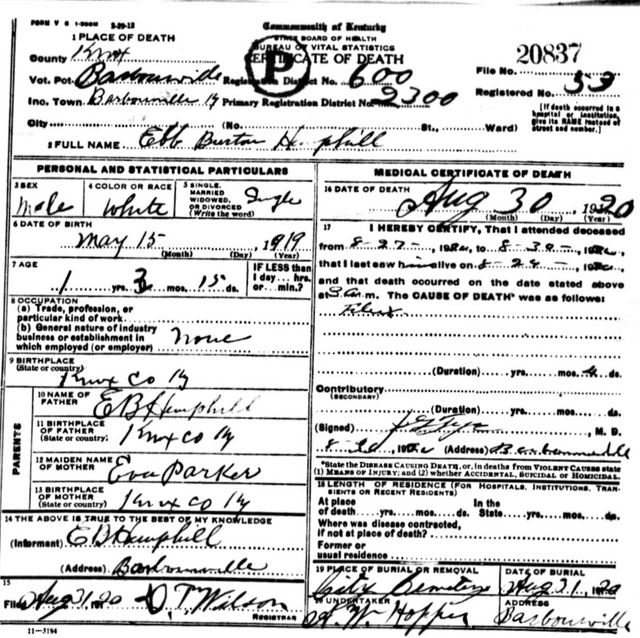 FORM V S 1-200M 2-29-12
Commonwealth of Kentucky
STATE BOARD OF HEALTH
BUREAU OF VITAL STATISTICS
CERTIFICATE OF DEATH
P
1 PLACE OF DEATH
County Knox
Vot. Pct. Barbourville Registration District No. 600
Inc. Town Barbourville Ky Primary Registration District No. 2300
City (No. St., Ward)
20837
File No.
Registered No. 53
[If death occurred in a hospital or institution, give its NAME instead of street and number.]
2 FULL NAME Ebb Burton Hemphill
PERSONAL AND STATISTICAL PARTICULARS
3 SEX Male
4 COLOR OR RACE White
5 SINGLE, MARRIED WIDOWED, OR DIVORCED (Write the word) Single
6 DATE OF BIRTH
May 15 1919
(Month) (Day) (Year)
7 AGE
1 yrs. 3 mos. 15 ds.
IF LESS than 1 day... hrs. or min.?
8 OCCUPATION
(a) Trade, profession, or particular kind of work
(b) General nature of industry business or establishment in which employed (or employer) None
9 BIRTHPLACE
(State or country) Knox Co Ky
PARENTS
10 NAME OF FATHER E B Hemphill
11 BIRTHPLACE OF FATHER (State or country) Knox co Ky
12 MAIDEN NAME OF MOTHER Eva Parker
13 BIRTHPLACE OF MOTHER (State or country) Knox Co Ky
14 THE ABOVE IS TRUE TO THE BEST OF MY KNOWLEDGE
(Informant) E B Hemphill
(Address) Barbourville
15
Filed Aug 31 1920 O. T. Wilson
REGISTRAR
11-3184
MEDICAL CERTIFICATE OF DEATH
16 DATE OF DEATH
Aug 30 1920
(Month) (Day) (Year)
17 I HEREBY CERTIFY, That I attended deceased
from 8-27-, 1920, to 8-30-, 1920,
that I last saw him alive on 8-29-, 1920,
and that death occurred on the date stated above
at 3 a.m. The CAUSE OF DEATH* was as follows:
(Duration) yrs. mos. 4 ds.
Contributory
(SECONDARY)
(Duration) yrs. mos. ds.
(Signed) M. D.
1920 (Address) Barbourville
*State the DISEASE CAUSING DEATH, or, in deaths from VIOLENT CAUSES state (1) MEANS OF INJURY; and (2) whether ACCIDENTAL, SUICIDAL OR HOMICIDAL.
18 LENGTH OF RESIDENCE (FOR HOSPITALS, INSTITUTIONS, TRANSIENTS OR RECENT RESIDENTS)
At place of death yrs. mos. ds. In the State yrs. mos. ds.
Where was disease contracted,
if not at place of death?
Former or
usual residence
19 PLACE OF BURIAL OR REMOVAL City Cemetery
DATE OF BURIAL Aug 31 1920
20 UNDERTAKER W Hopper
ADDRESS Barbourville